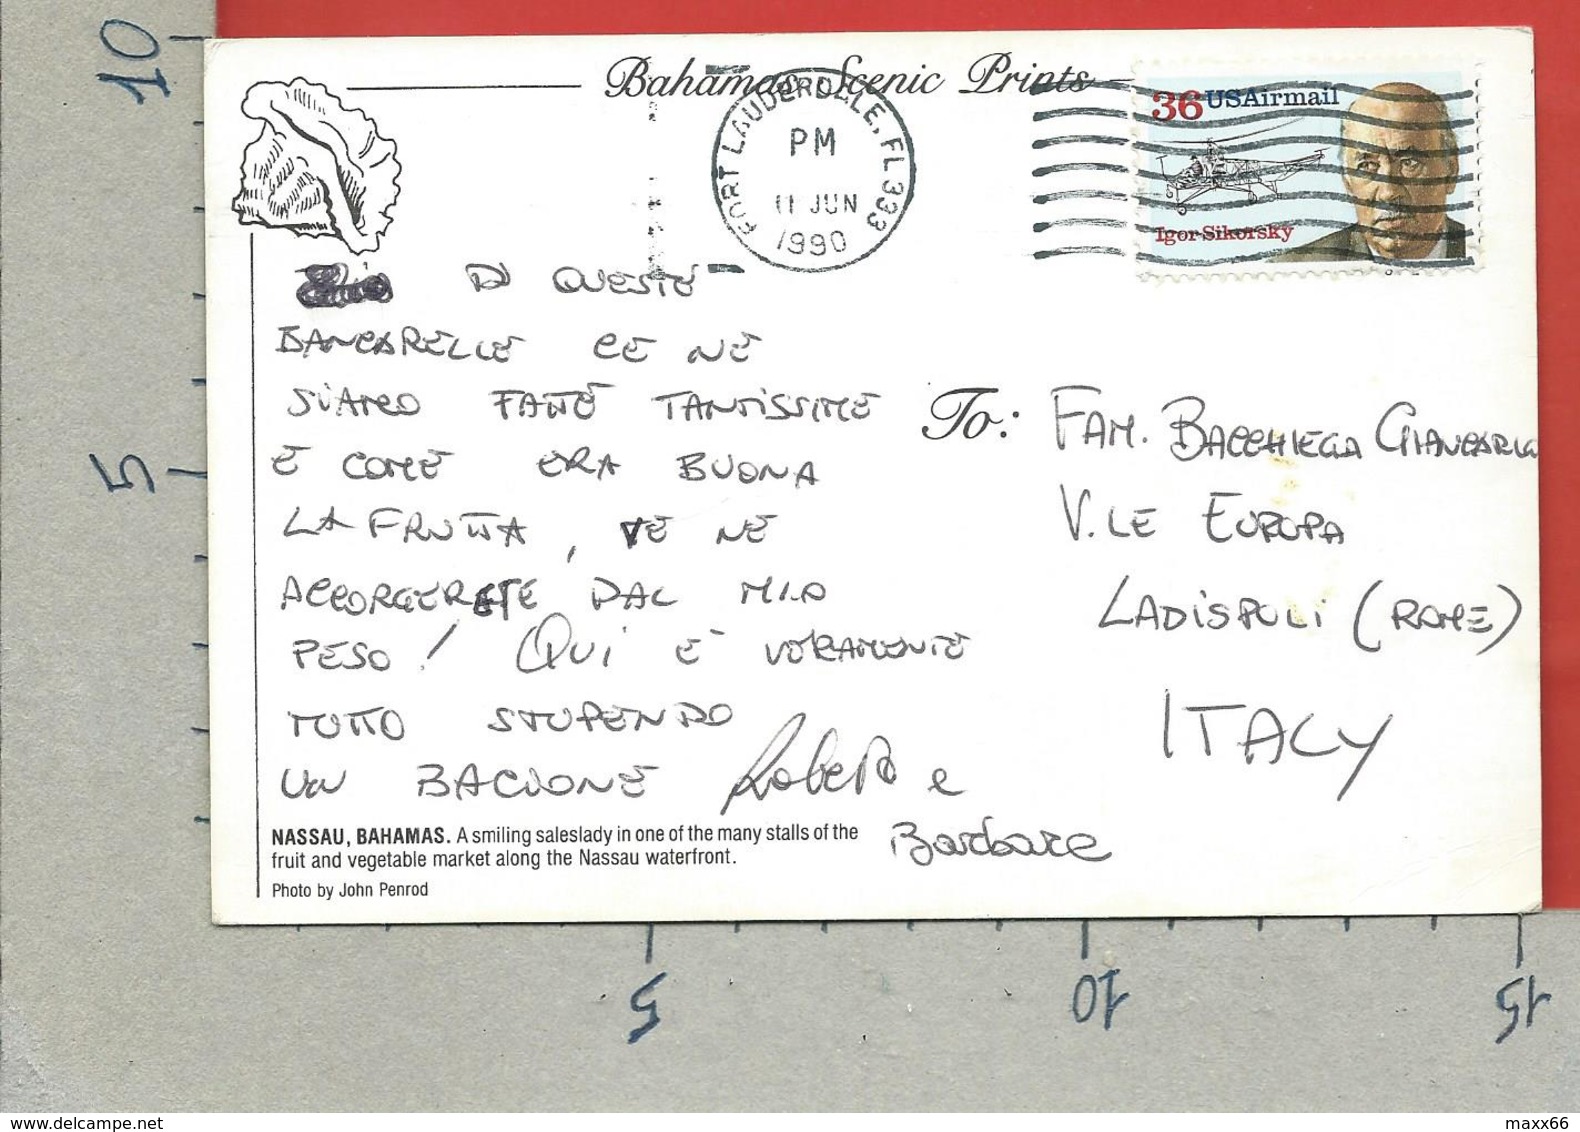 Bahamas Scenic Prints
FORT LAUDERDALE, FL 333
PM
11 JUN
1990
36 USAirmail
Igor Sikorsky
DI QUESTE
BANCARELLE CE NE
SIAMO FATTE TANTISSIME
E COME ERA BUONA
LA FRUTTA, VE NE
ACCORGERETE DAL MIO
PESO! QUI È VERAMENTE
TUTTO STUPENDO
UN BACIONE Roberto e
Barbara
To: FAM. BACCHIEGA GIANCARLO
V.LE EUROPA
LADISPOLI (ROME)
ITALY
NASSAU, BAHAMAS. A smiling saleslady in one of the many stalls of the
fruit and vegetable market along the Nassau waterfront.
Photo by John Penrod
10
5
5
10
15
www.delcampe.net
maxx66